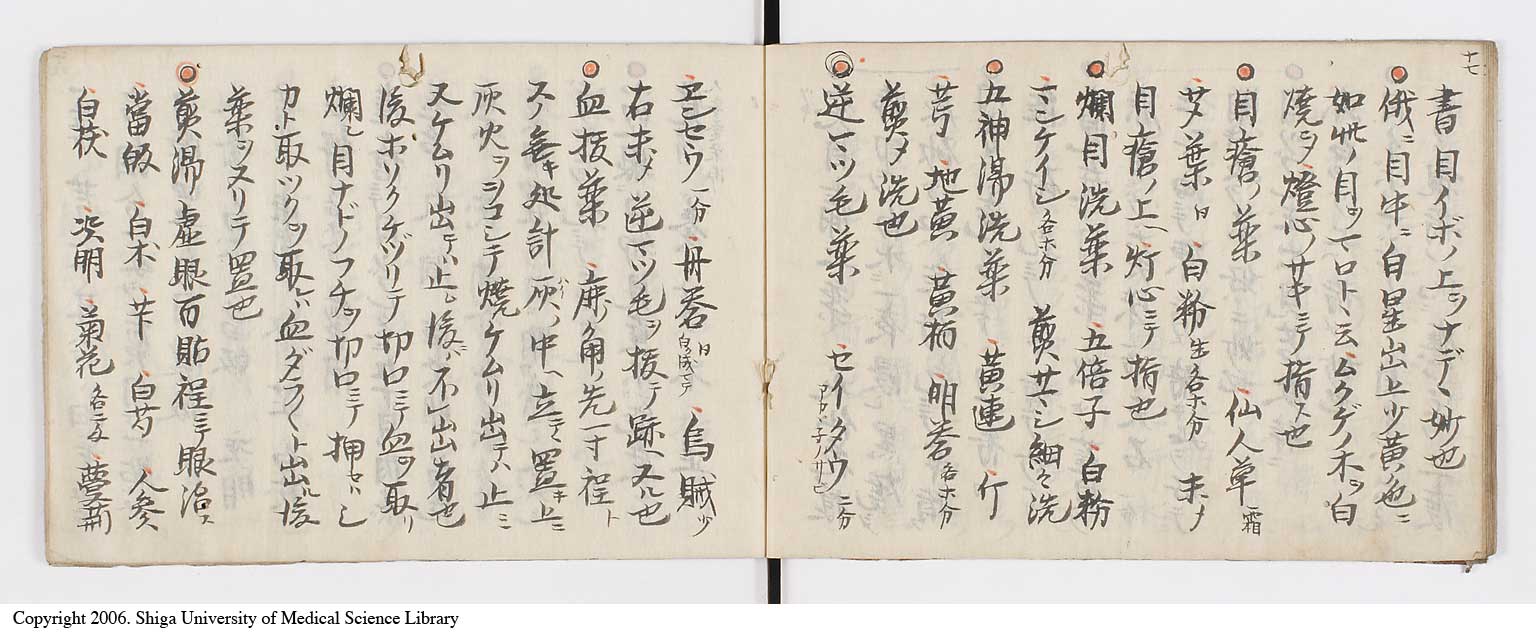 十七
書目イボノ上ヲナデヽ妙也
俄ニ目中ニ白星出上少黄ノ色ニ
如此ノ目ヲマロトヽ云ムクゲノ木ヲ白
燒ヲ燈心ノサキニテ指ス也
目瘡ノ藥 仙人草 霜
サメ葉 日 白粉 生 各木分 末メ
目瘡ノ上ヘ灯心ニテ指也
爛目洗藥 五倍子 白粉
マンケイシ 各木分 煎サマシ細々洗
五神湯洗藥 黄連 行
芎 地黄 黄栢 明礬 各木分
煎メ洗也
逆マツ毛藥 セイタウ 二分
ヱンセウ 一分 丹礬 日 烏賊 少
右末メ逆マツ毛ヲ拔テ跡ヘ入ル也
血拔藥 鹿ノ角ノ先一寸程ト
スノ無キ処計灰ノ中ヘ立テヽ置キ上ニ
灰火ヲシコシテ燒ケムリ出テハ止ミ
又ケムリ出テハ止シ後ニハ不出者也
後ホリクケヅリテ切口ニテ血ヲ取リ
爛レ目ナドノフチヲ切口ニテ押セハシ
カト取ツクヲ取レハ血ダラ〱ト出ル後
藥ヲヌリテ置也
煎湯虚眼百貼程ニテ眼治ス
當皈 白朮 芐 白芍 人參
白茯 决明 菊花 各二匁 蔓荊